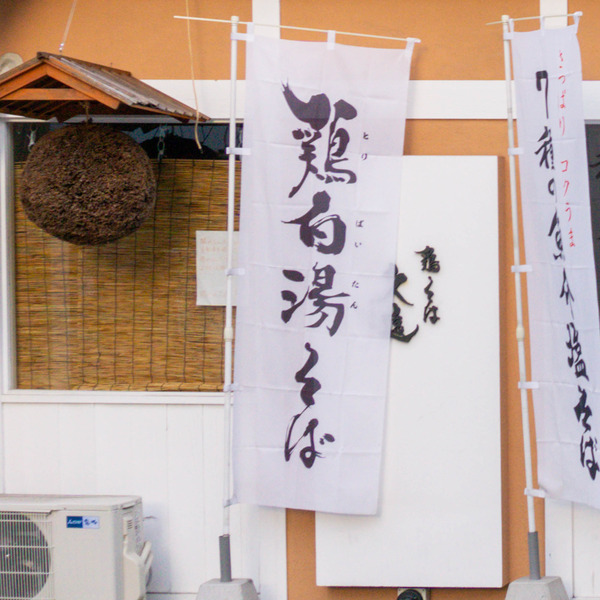 鶏白湯そば
とり
ぱいたん
鶏そば
さっぱり コクうま
7種の魚介塩そば